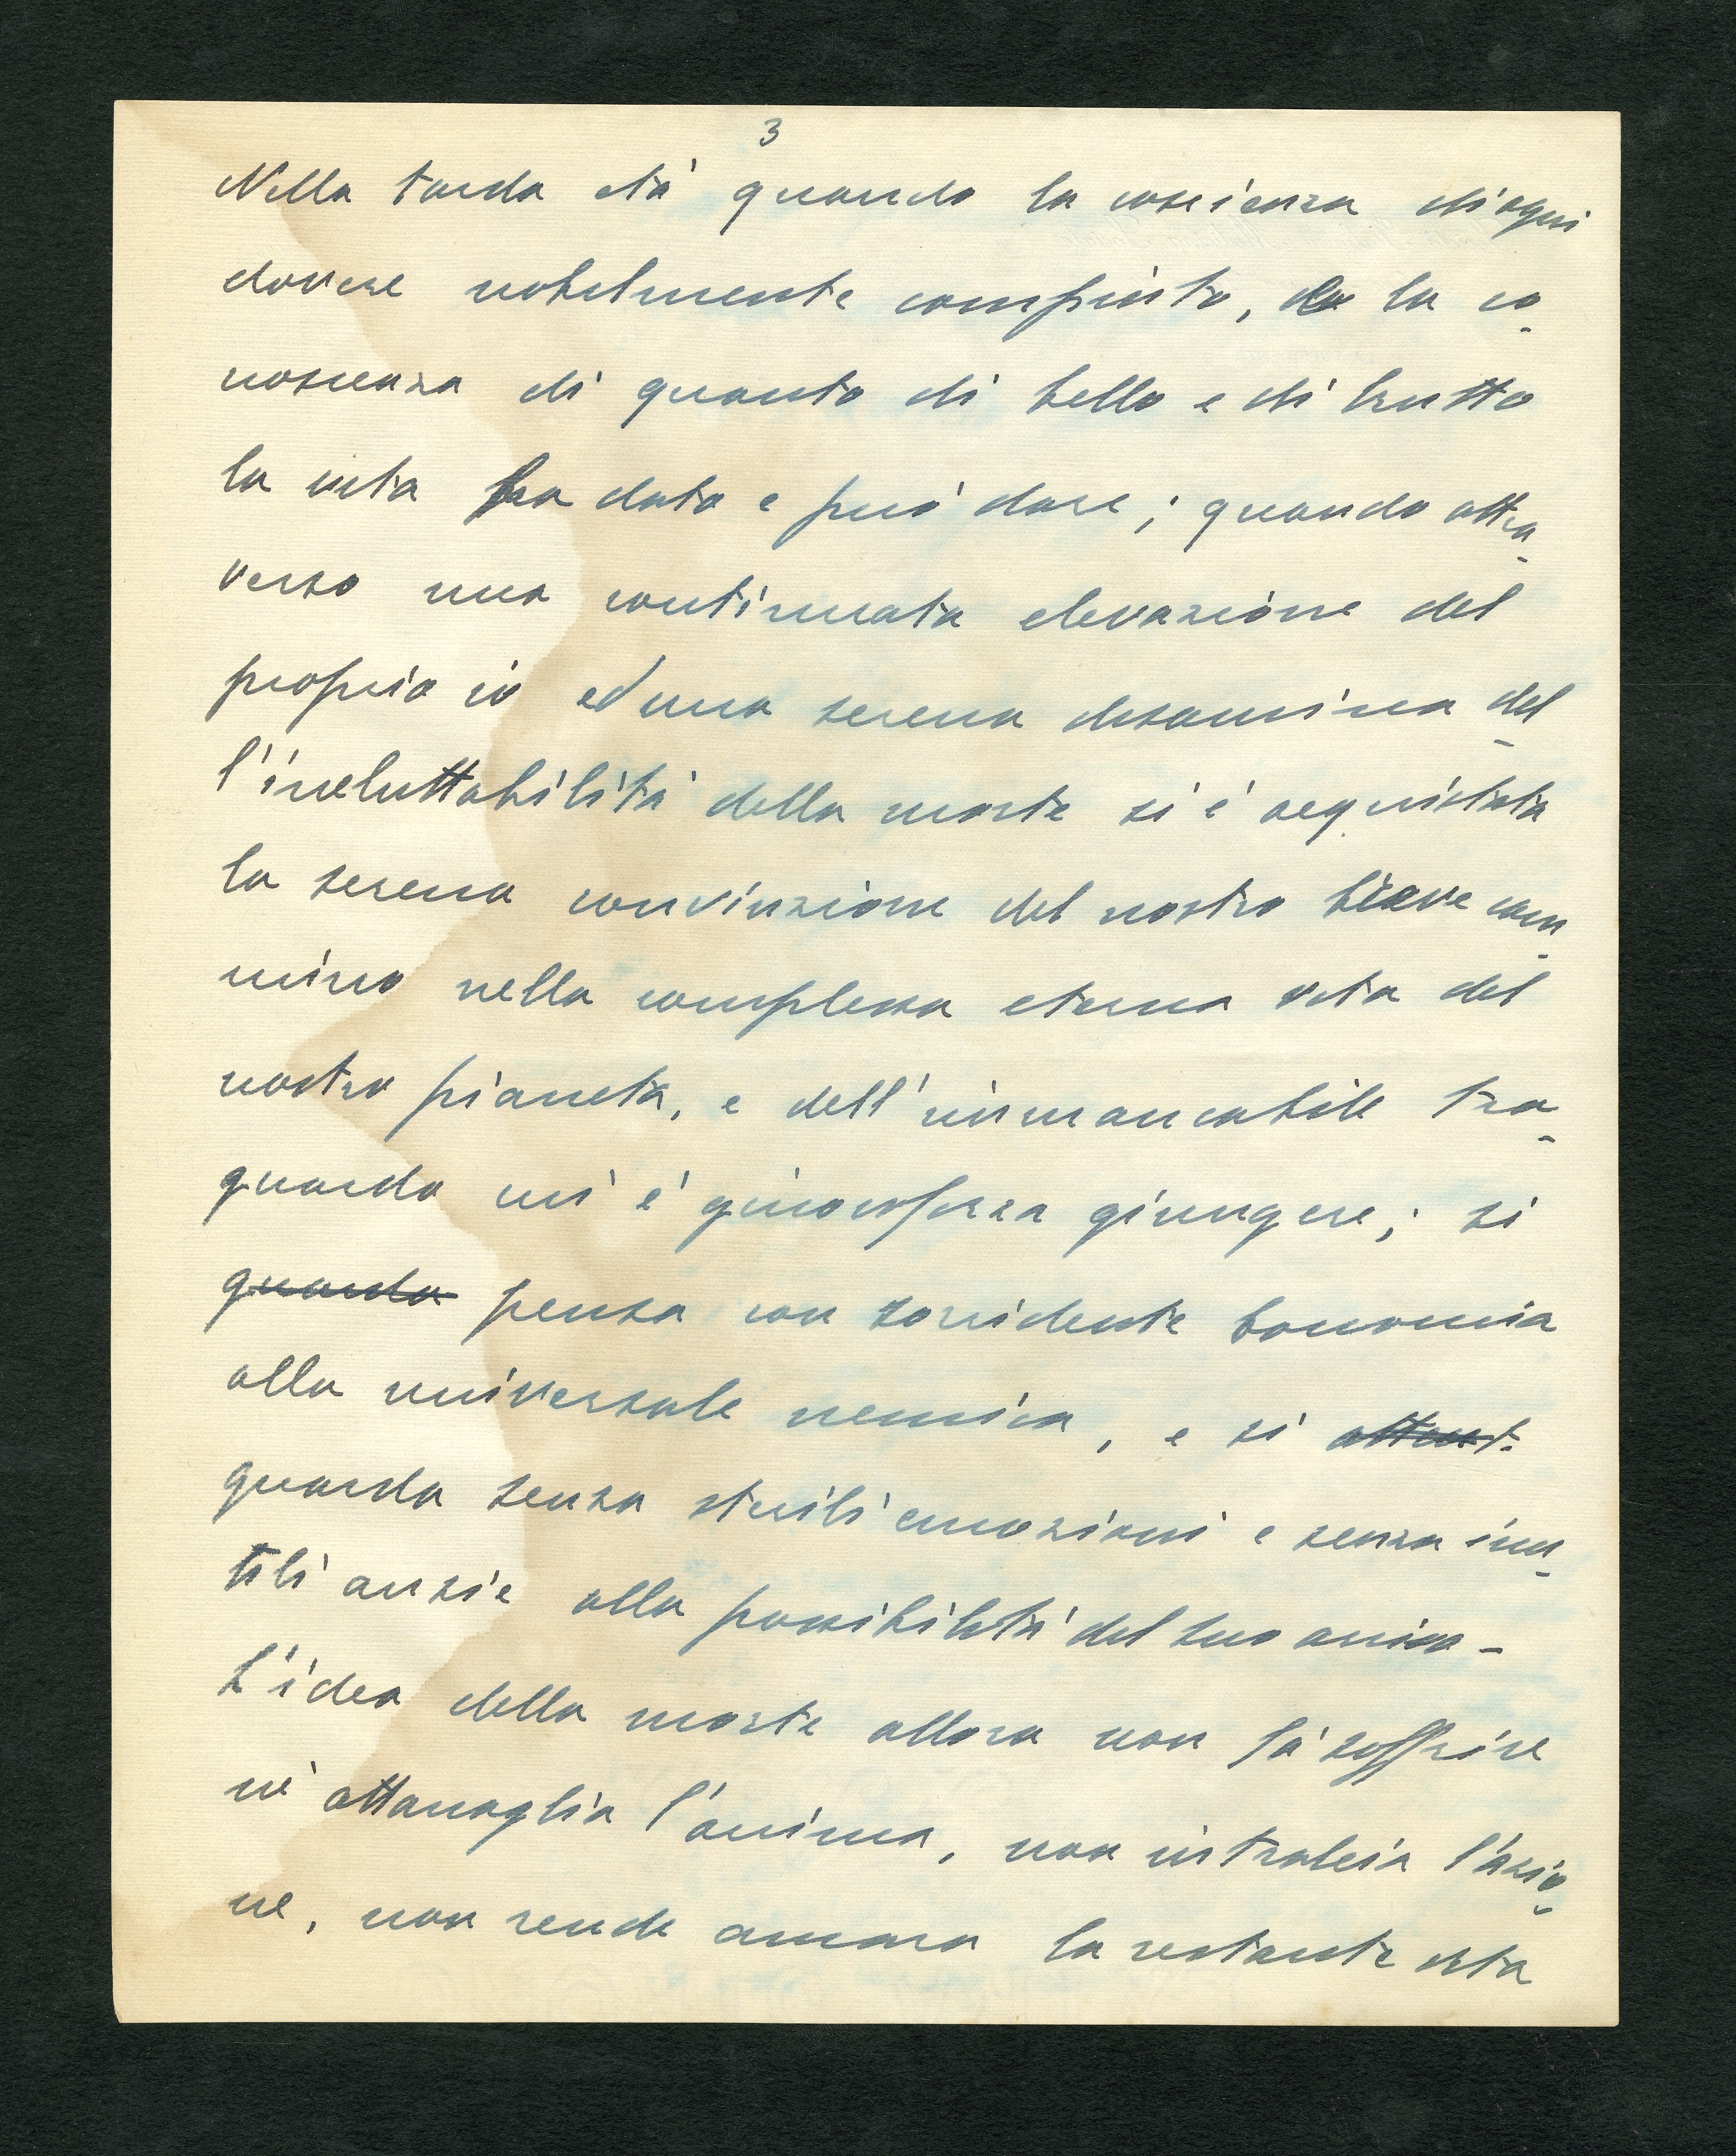 3
Nella tarda età quando la coscienza di ogni
dovere nobilmente compiuto, da la co
noscenza di quanto di bello e di brutto
la vita ha dato e può dare; quando attra
verso una continuata elevazione del
proprio io ed una serena disamina del
l'ineluttabilità della morte si è acquistata
la serena convinzione del nostro breve cam
mino nella complessa eterna vita del
nostro pianeta, e dell'immancabile tra
guardo cui è giuocoforza giungere; si
guarda pensa con sorridente bonomia
alla universale nemica, e si attent.
guarda senza sterili emozioni e senza inu
tili ansie alla possibilità del suo arrivo -
L'idea della morte allora non fà soffrire
nè attanaglia l'anima, non intralcia l'azio
ne, non rende amara la restante vita